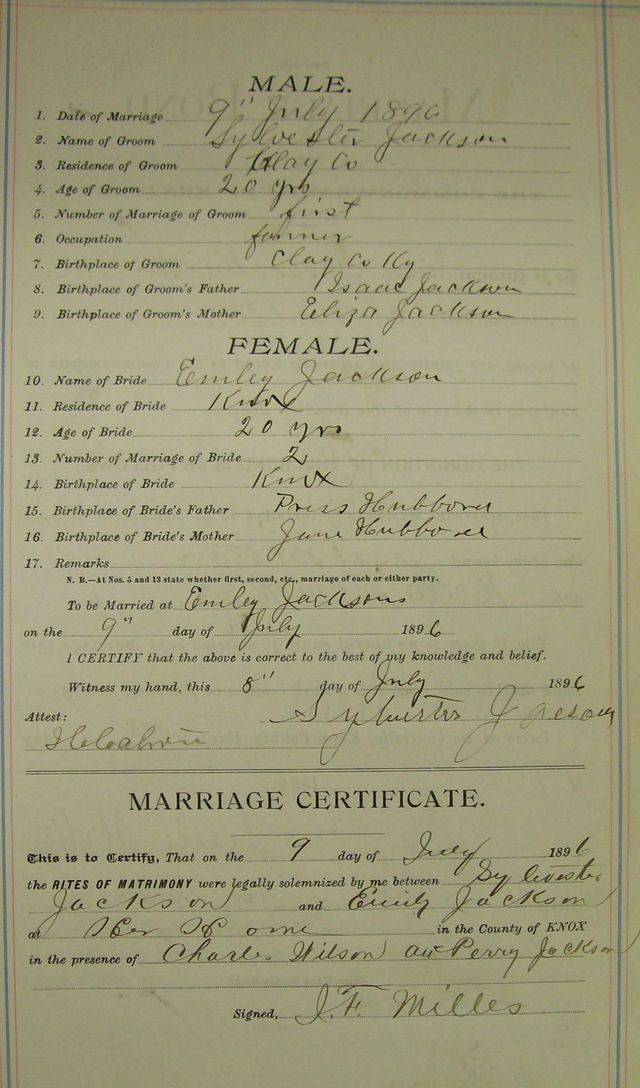 MALE.
1. Date of Marriage 9" July 1896
2. Name of Groom Sylvester Jackson
3. Residence of Groom Clay Co
4. Age of Groom 20 yrs
5. Number of Marriage of Groom first
6. Occupation farmer
7. Birthplace of Groom Clay Co Ky
8. Birthplace of Groom's Father Isaac Jackson
9. Birthplace of Groom's Mother Eliza Jackson
FEMALE.
10. Name of Bride Emley Jackson
11. Residence of Bride Knox
12. Age of Bride 20 yrs
13. Number of Marriage of Bride 2
14. Birthplace of Bride Knox
15. Birthplace of Bride's Father Press
16. Birthplace of Bride's Mother Jane
17. Remarks
N. B.—At Nos. 5 and 13 state whether first, second, etc., marriage of each or either party.
To be Married at Emley Jacksons
on the 9" day of July 1896
I CERTIFY that the above is correct to the best of my knowledge and belief.
Witness my hand, this 8" day of July 1896
Attest:
MARRIAGE CERTIFICATE.
This is to Certify, That on the 9 day of July 1896
the RITES OF MATRIMONY were legally solemnized by me between Sylvester
Jackson and Emily Jackson
at Her Home in the County of KNOX
in the presence of Charles Wilson Perry Jackson
Signed, J. F. Milles